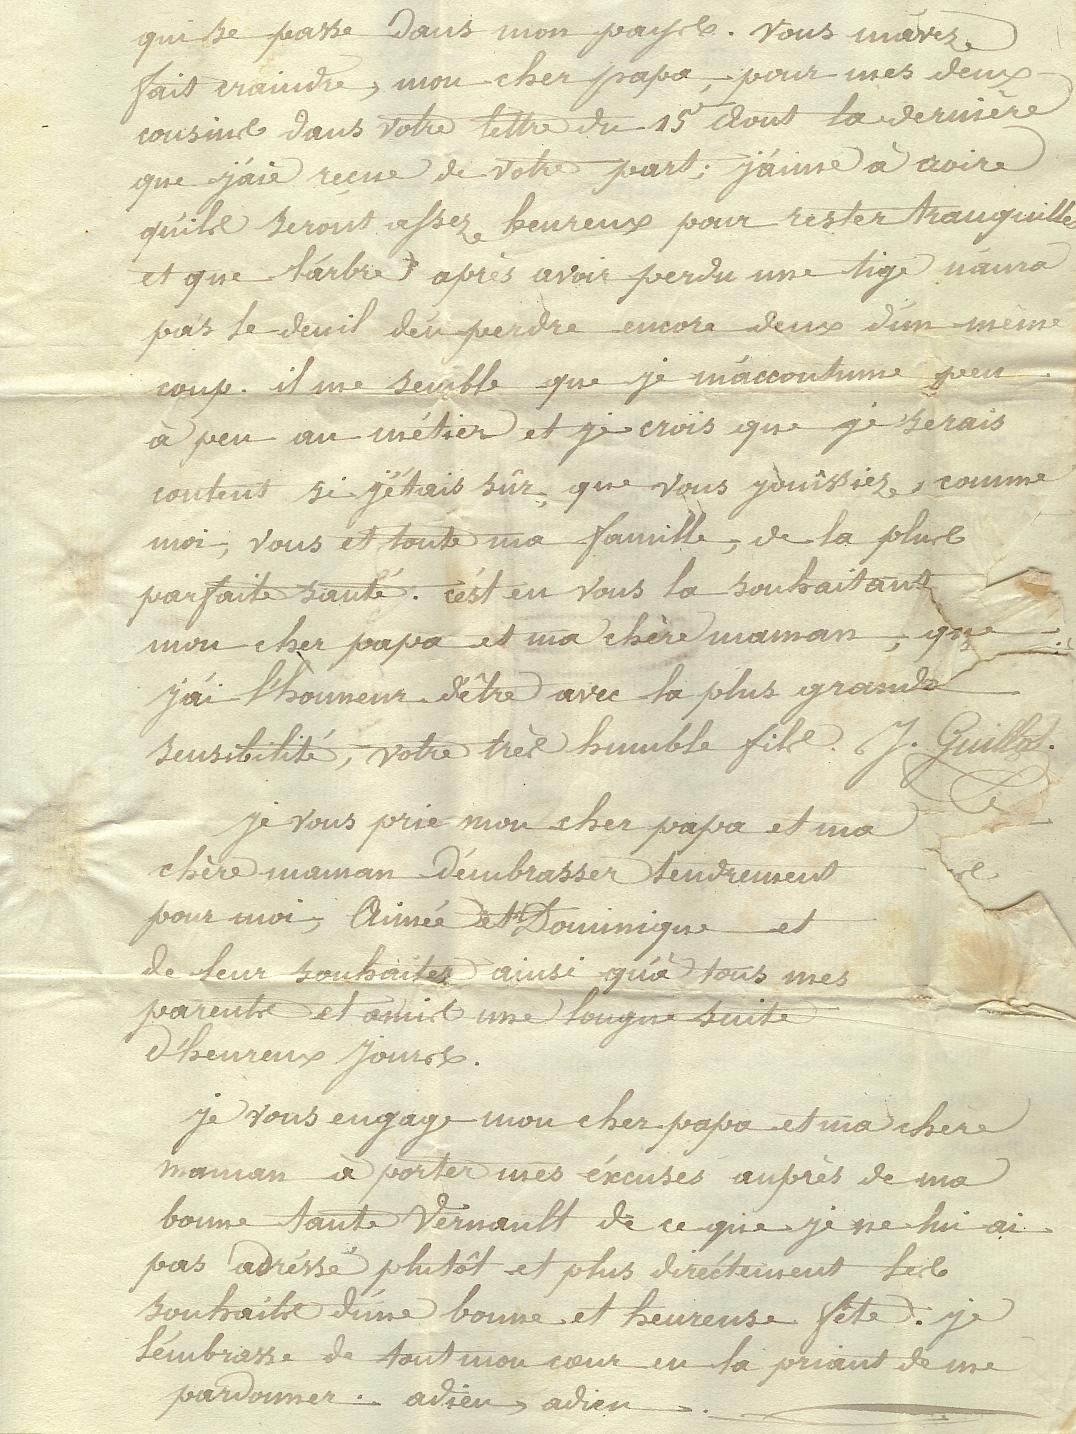 qui se passe dans mon pays. vous m'avez
fait craindre, mon cher papa, pour mes deux
cousins dans votre lettre du 15 Aout la dernière
que j'aie reçue de votre part; j'aime à croire
qu'ils seront assez heureux pour rester tranquilles
et que l'arbre après avoir perdu une tige n'aura
pas le deuil d'en perdre encore deux d'un même
coup. il me semble que je m'accoutume peu
à peu au métier et je crois que je serais
content si j'étais sûr, que vous jouissiez, comme
moi, vous et toute ma famille, de la plus
parfaite santé. c'est en vous la souhaitant
mon cher papa et ma chère maman, que
j'ai l'honneur d'être avec la plus grande
sensibilité, votre très humble fils. J. Guillot.
je vous prie mon cher papa et ma
chère maman d'embrasser tendrement
pour moi, Aimée et Dominique et
de leur souhaiter ainsi qu'à tous mes
parents et amis une longue suite
d'heureux jours.
je vous engage mon cher papa et ma chere
maman à porter mes éxcuses auprès de ma
bonne tante Vernault de ce que je ne lui ai
pas adréssé plutôt et plus diréctement les
souhaits d'une bonne et heureuse fête. je
l'embrasse de tout mon cœur en la priant de me
pardonner. adieu, adieu.